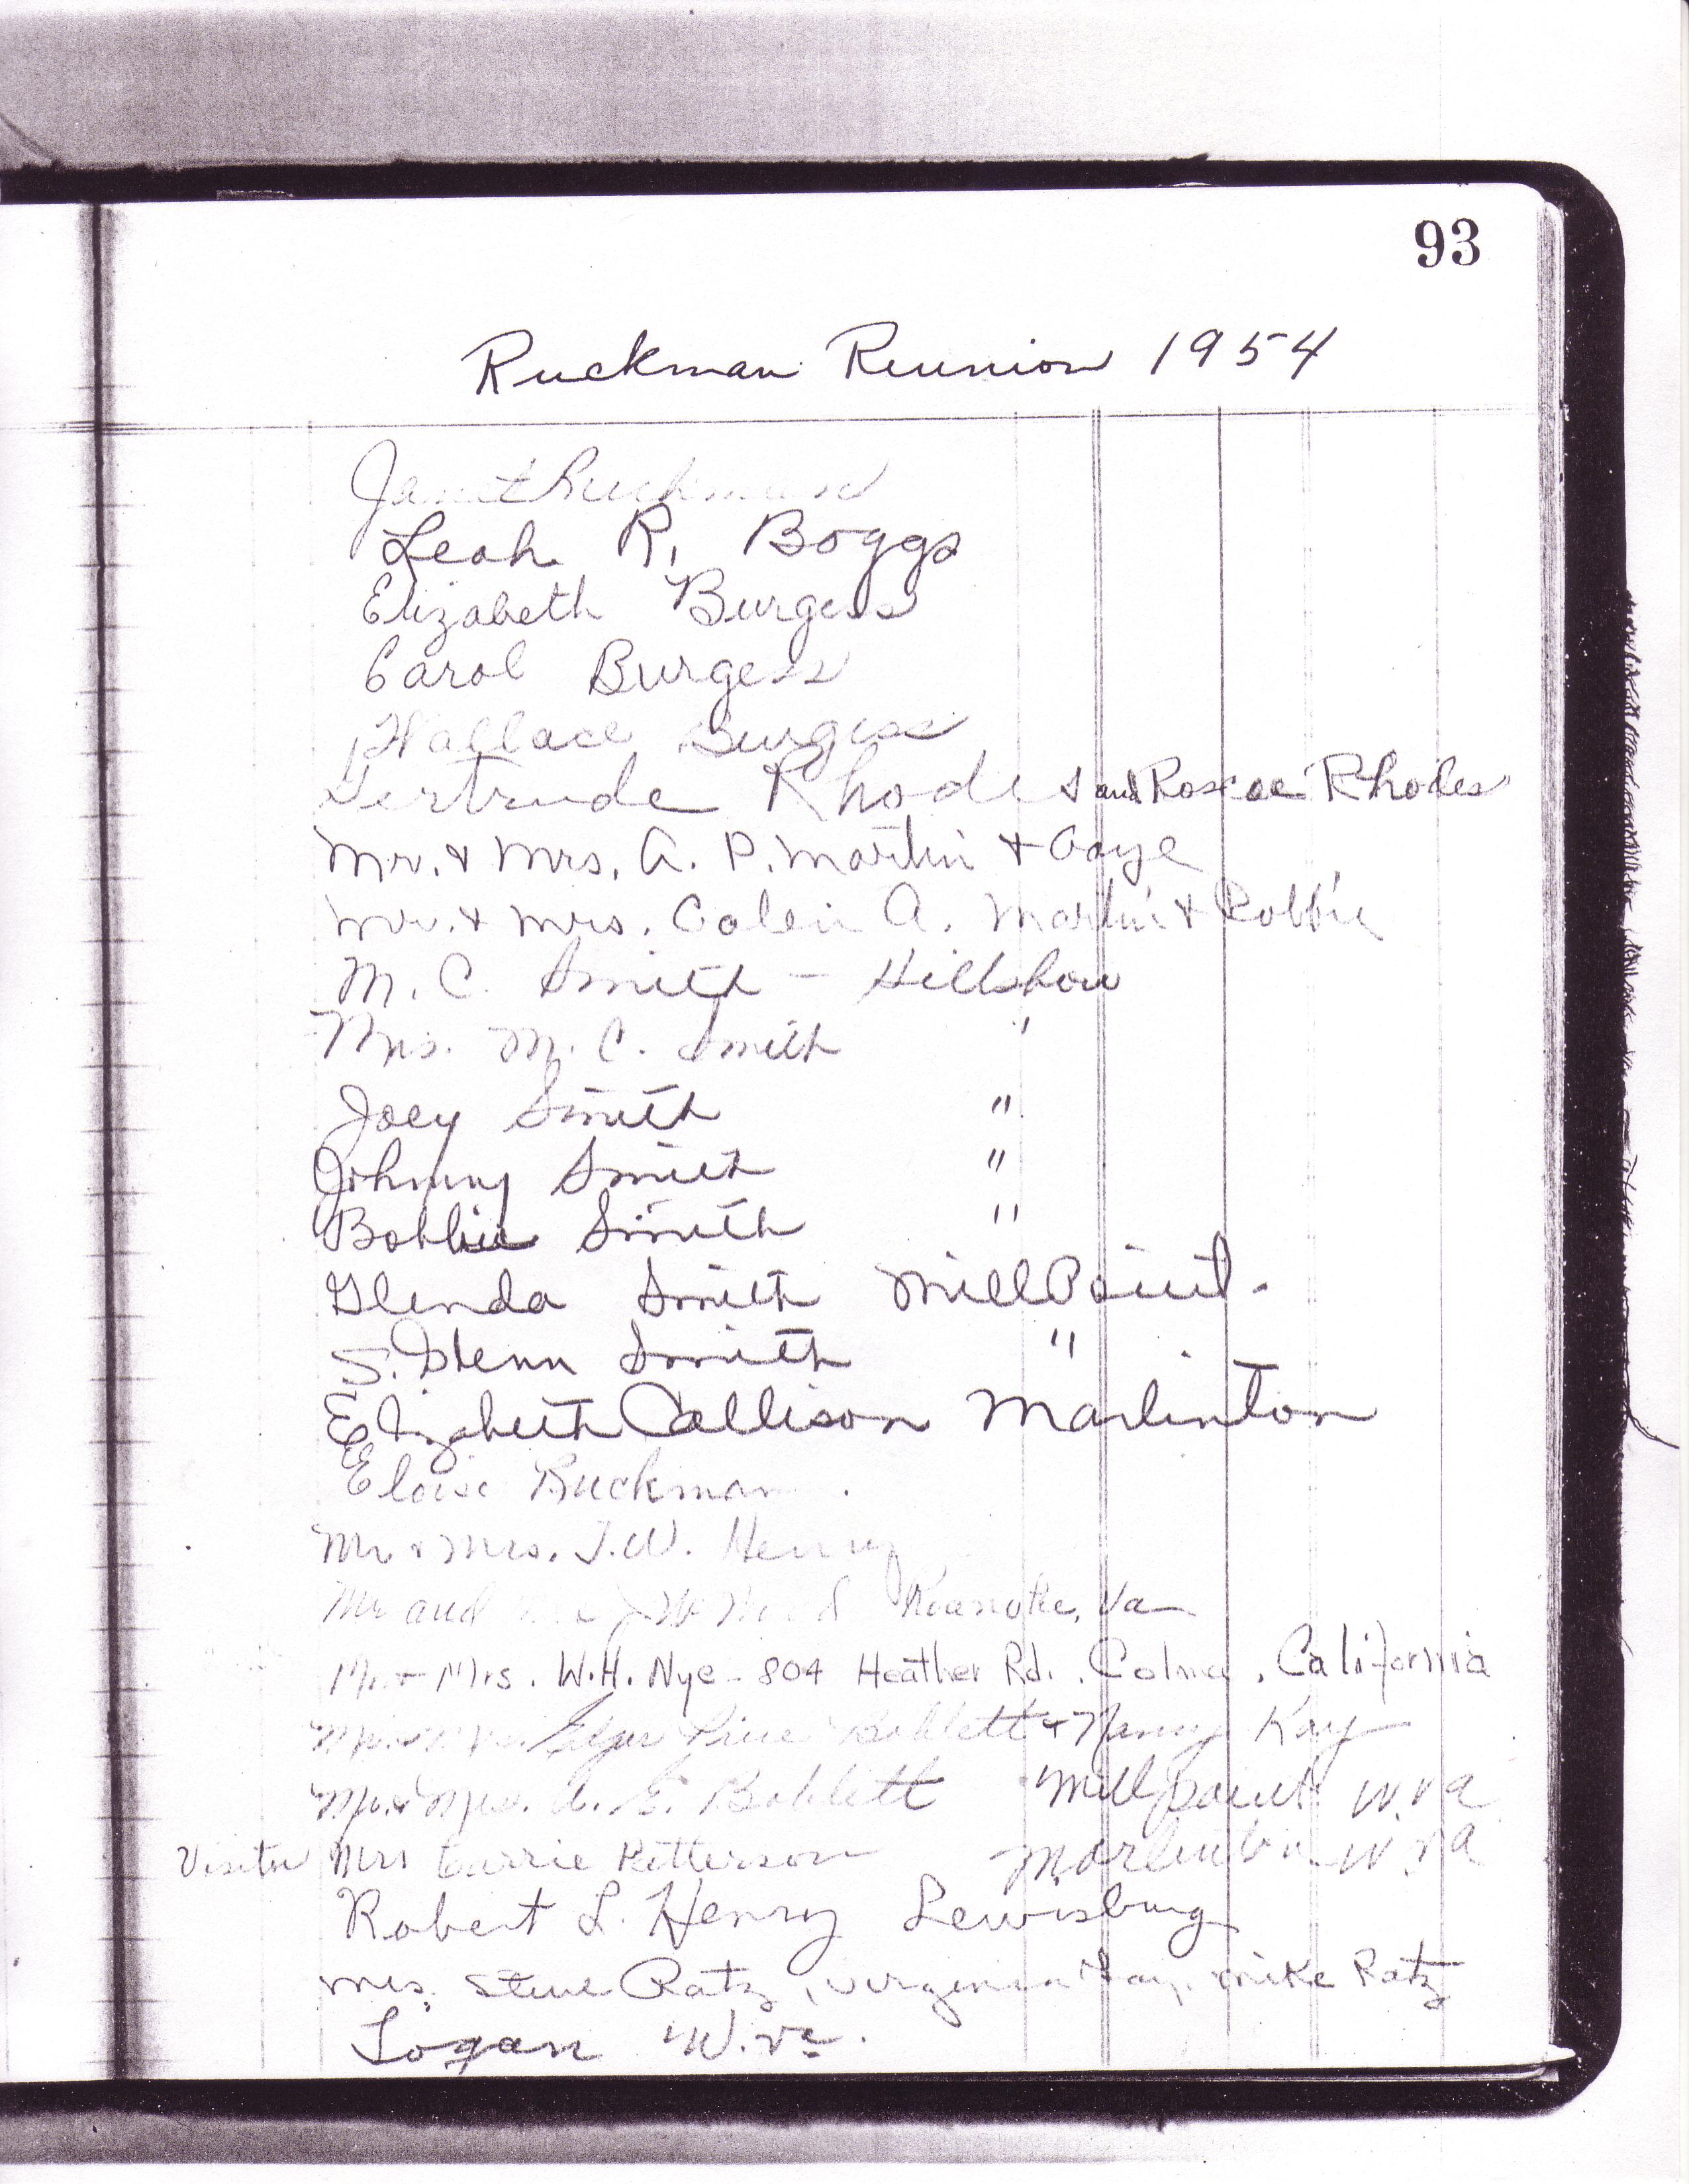 93
Ruckman Reunion 1954
Janet Ruckman
Leah R. Boggs
Elizabeth Burgess
Carol Burgess
Wallace Burgess
Gertrude Rhodes and Roscoe Rhodes
Mr. & Mrs. A. P. Martin & Gaye
Mr. & Mrs. Colen A. Martin & Robbie
M. C. Smith - Hillsboro
Mrs. M. C. Smith "
Joey Smith "
Johnny Smith "
Bobbie Smith "
Glenda Smith Mill Point.
S. Glenn Smith "
Elizabeth Callison Marlinton
Eloise Ruckman
Mr & Mrs. J. W. Henry
Mr and Roanoke, Va
Mr. + Mrs. W.H. Nye - 804 Heather Rd., Colma, California
Mr. & Mrs. Price Boblett & Nancy Kay
Mr. & Mrs. A. E. Boblett Mill point W. va
Visitor Mrs Carrie Ketterson Marlinton W. va
Robert L. Henry Lewisburg
Mrs. Steve Ratz, Virginia Fay, Mike Ratz
Logan W. Va.